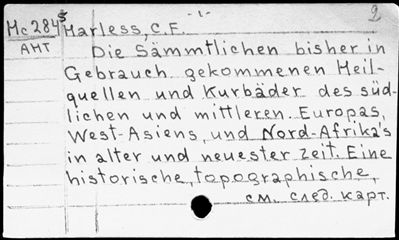 -1- 2
Мс 284⁵ Harless, C.F.
АНТ Die Sämmtlichen bisher in
Gebrauch gekommenen Heil-
quellen und Kurbäder des süd-
lichen und mittleren Europas,
West-Asiens, und Nord-Afrika's
in alter und neuester Zeit. Eine
historische, topographische,
см. след. карт.